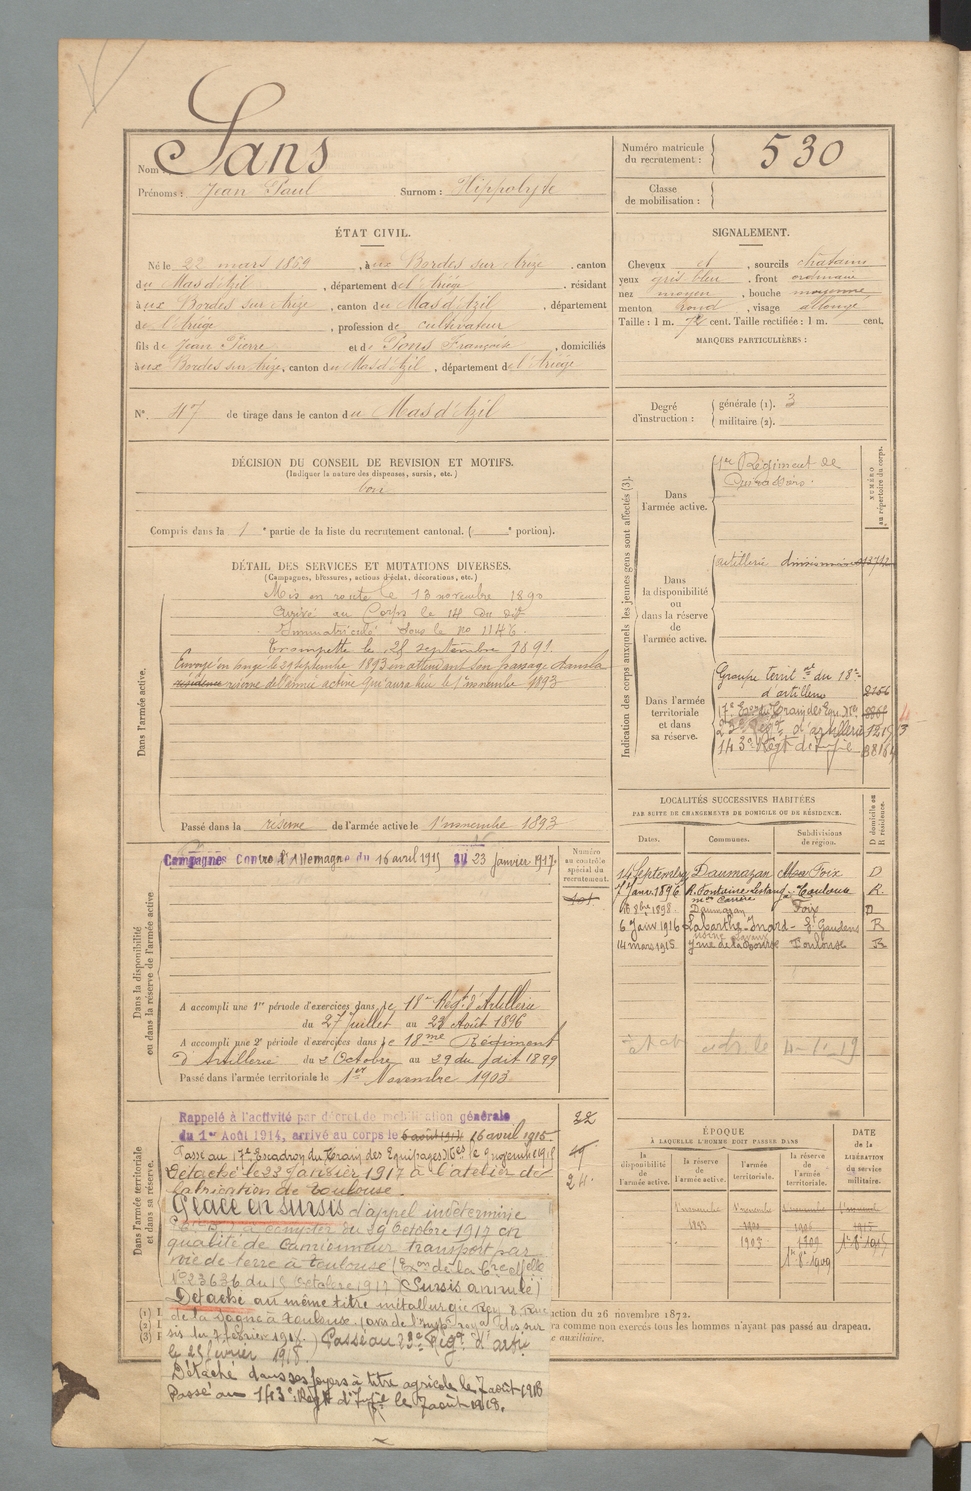 Nom : Sans
Prénoms : Jean Paul Surnom : Hippolyte
Numéro matricule du recrutement : 530
Classe de mobilisation :
ÉTAT CIVIL.
Né le 22 mars 1869, à ux Bordes sur Arize, canton
du Mas d'Azil, département de l'Ariège, résidant
à ux Bordes sur Arize, canton du Mas d'Azil, département
de l'Ariège, profession de cultivateur
fils de Jean Pierre et de Pons Françoise, domiciliés
à ux Bordes sur Arize, canton du Mas d'Azil, département de l'Ariège
N° 47 de tirage dans le canton du Mas d'Azil
SIGNALEMENT.
Cheveux et, sourcils chatains
yeux gris bleu, front ordinaire
nez moyen, bouche moyenne
menton rond, visage allongé
Taille : 1 m. 72 cent. Taille rectifiée : 1 m. cent.
MARQUES PARTICULIÈRES :
Degré d'instruction : générale (1). 3
militaire (2).
DÉCISION DU CONSEIL DE REVISION ET MOTIFS.
(Indiquer la nature des dispenses, sursis, etc.)
bon
Compris dans la 1e partie de la liste du recrutement cantonal. ( e portion).
DÉTAIL DES SERVICES ET MUTATIONS DIVERSES.
(Campagnes, blessures, actions d'éclat, décorations, etc.)
Dans l'armée active.
Mis en route le 13 novembre 1890
Arrivé au Corps le 14 du dit
Immatriculé sous le no 1146.
Trompette le 25 septembre 1891.
Envoyé en congé le 29 septembre 1893 en attendant son passage dans la
résidence réserve de l'armée active qui aura lieu le 1er novembre 1893
Passé dans la réserve de l'armée active le 1er novembre 1893
Indication des corps auxquels les jeunes gens sont affectés (3).
NUMÉRO au répertoire du corps.
Dans l'armée active.
1er Régiment de
Dans la disponibilité ou dans la réserve de l'armée active.
artillerie divisionnaire
Dans l'armée territoriale et dans sa réserve.
Groupe territ al du 18e
d'artillerie 2156
17e Eson du Train des Equ. Mres
d'artillerie
143e Regt d'Infie
LOCALITÉS SUCCESSIVES HABITÉES
PAR SUITE DE CHANGEMENTS DE DOMICILE OU DE RÉSIDENCE.
Dates. Communes. Subdivisions de région. D domicile ou R résidence.
14 Septembre Daumazan Foix D
7 Janv. 1896 R. Fontaine Lestang Toulouse R.
16 8bre 1898 Daumazan Foix D
6 Janv 1916 Labarthe-Inard St Gaudens R
14 mars 1918 Toulouse R
Dans la disponibilité ou dans la réserve de l'armée active
Campagnes Contre l'Allemagne du 16 avril 1915 au 23 janvier 1917.
Numéro au contrôle spécial du recrutement.
A accompli une 1re période d'exercices dans le 18e Régt d'Artillerie
du 27 Juillet au 23 Août 1896
A accompli une 2e période d'exercices dans le 18me Régiment
D'Artillerie du 2 Octobre au 29 du dit 1899
Passé dans l'armée territoriale le 1er Novembre 1903
Dans l'armée territoriale et dans sa réserve.
Rappelé à l'activité par décret de mobilisation générale
du 1er Août 1914, arrivé au corps le 16 avril 1915
Passé au 17e Escadron du Train des Equipages Mres le 9 novembre 1915
Détaché le 23 Janvier 1917 à l'atelier de
fabrication de Toulouse.
Placé en sursis d'appel indéterminé
à compter du 29 Octobre 1917 en
qualité de Camionneur transport par
voie de terre à Toulouse
No 23636 du 15 Octobre 1917 (Sursis annulé)
Détaché au même titre métallurgie
à Toulouse
Passé au 23e Régt d'artie
le 25 février 1918
Détaché dans ses foyers à titre agricole le 7 août 1918
Passé au 143e Regt d'Infie le 7 août 1918.
ÉPOQUE
À LAQUELLE L'HOMME DOIT PASSER DANS
la disponibilité de l'armée active. la réserve de l'armée active. l'armée territoriale. la réserve de l'armée territoriale.
DATE de la LIBÉRATION du service militaire.
1893
1903 1909
1er 8e 1909
ction du 26 novembre 1872.
ra comme non exercés tous les hommes n'ayant pas passé au drapeau.
ce auxiliaire.